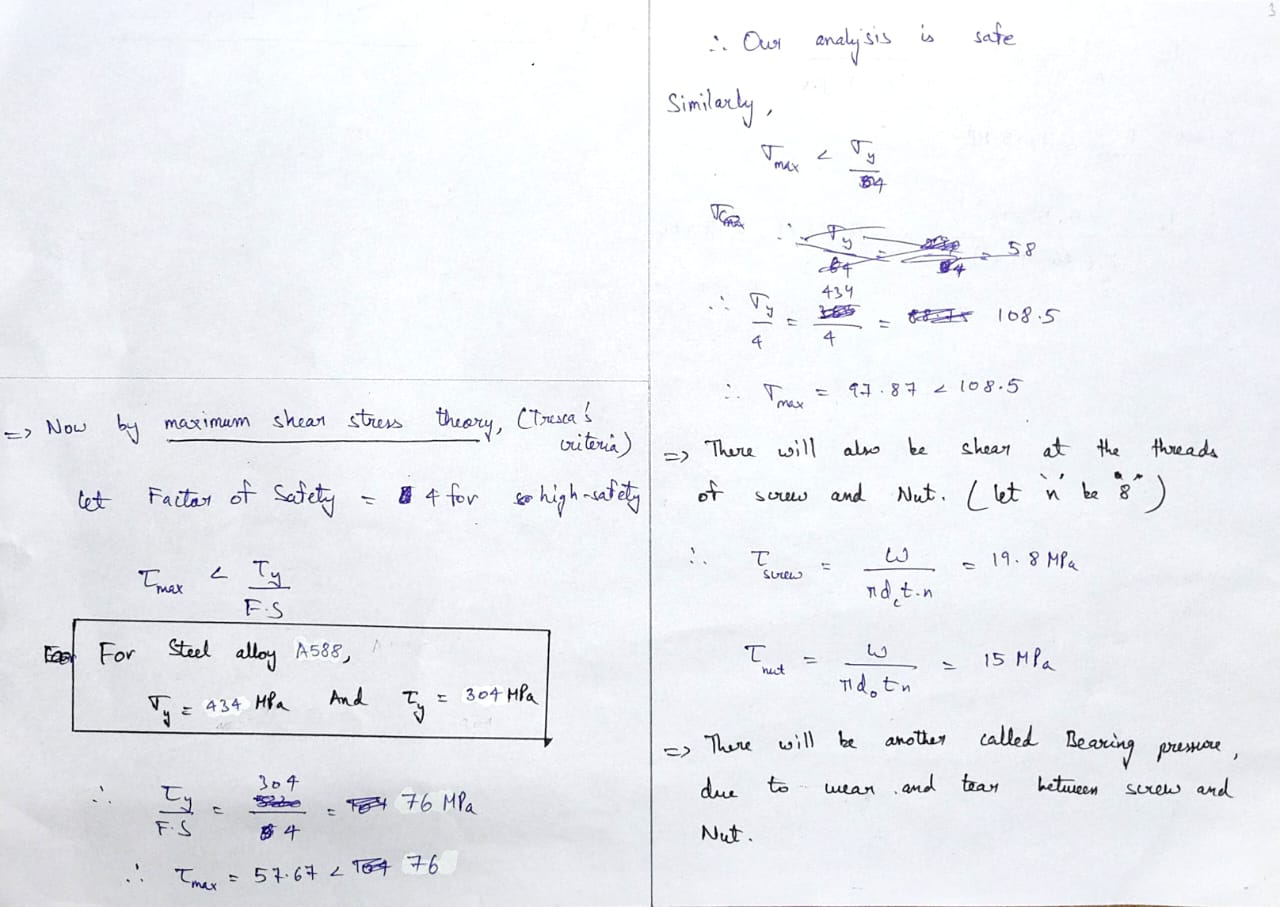 => Now by maximum shear stress theory, (Tresca's criteria)
let Factor of Safety = 4 for high-safety
τmax < τy / F.S
For Steel alloy A588,
σy = 434 MPa And τy = 304 MPa
∴ τy / F.S = 304 / 4 = 76 MPa
∴ τmax = 57.67 < 76
3
∴ Our analysis is safe
Similarly,
σmax < σy / 4
∴ σy / 4 = 58
∴ σy / 4 = 434 / 4 = 108.5
∴ σmax = 97.87 < 108.5
=> There will also be shear at the threads
of screw and Nut. (let 'n' be "8")
∴ τscrew = W / πdc t·n = 19.8 MPa
τnut = W / πdo t n = 15 MPa
=> There will be another called Bearing pressure,
due to wear and tear between screw and
Nut.